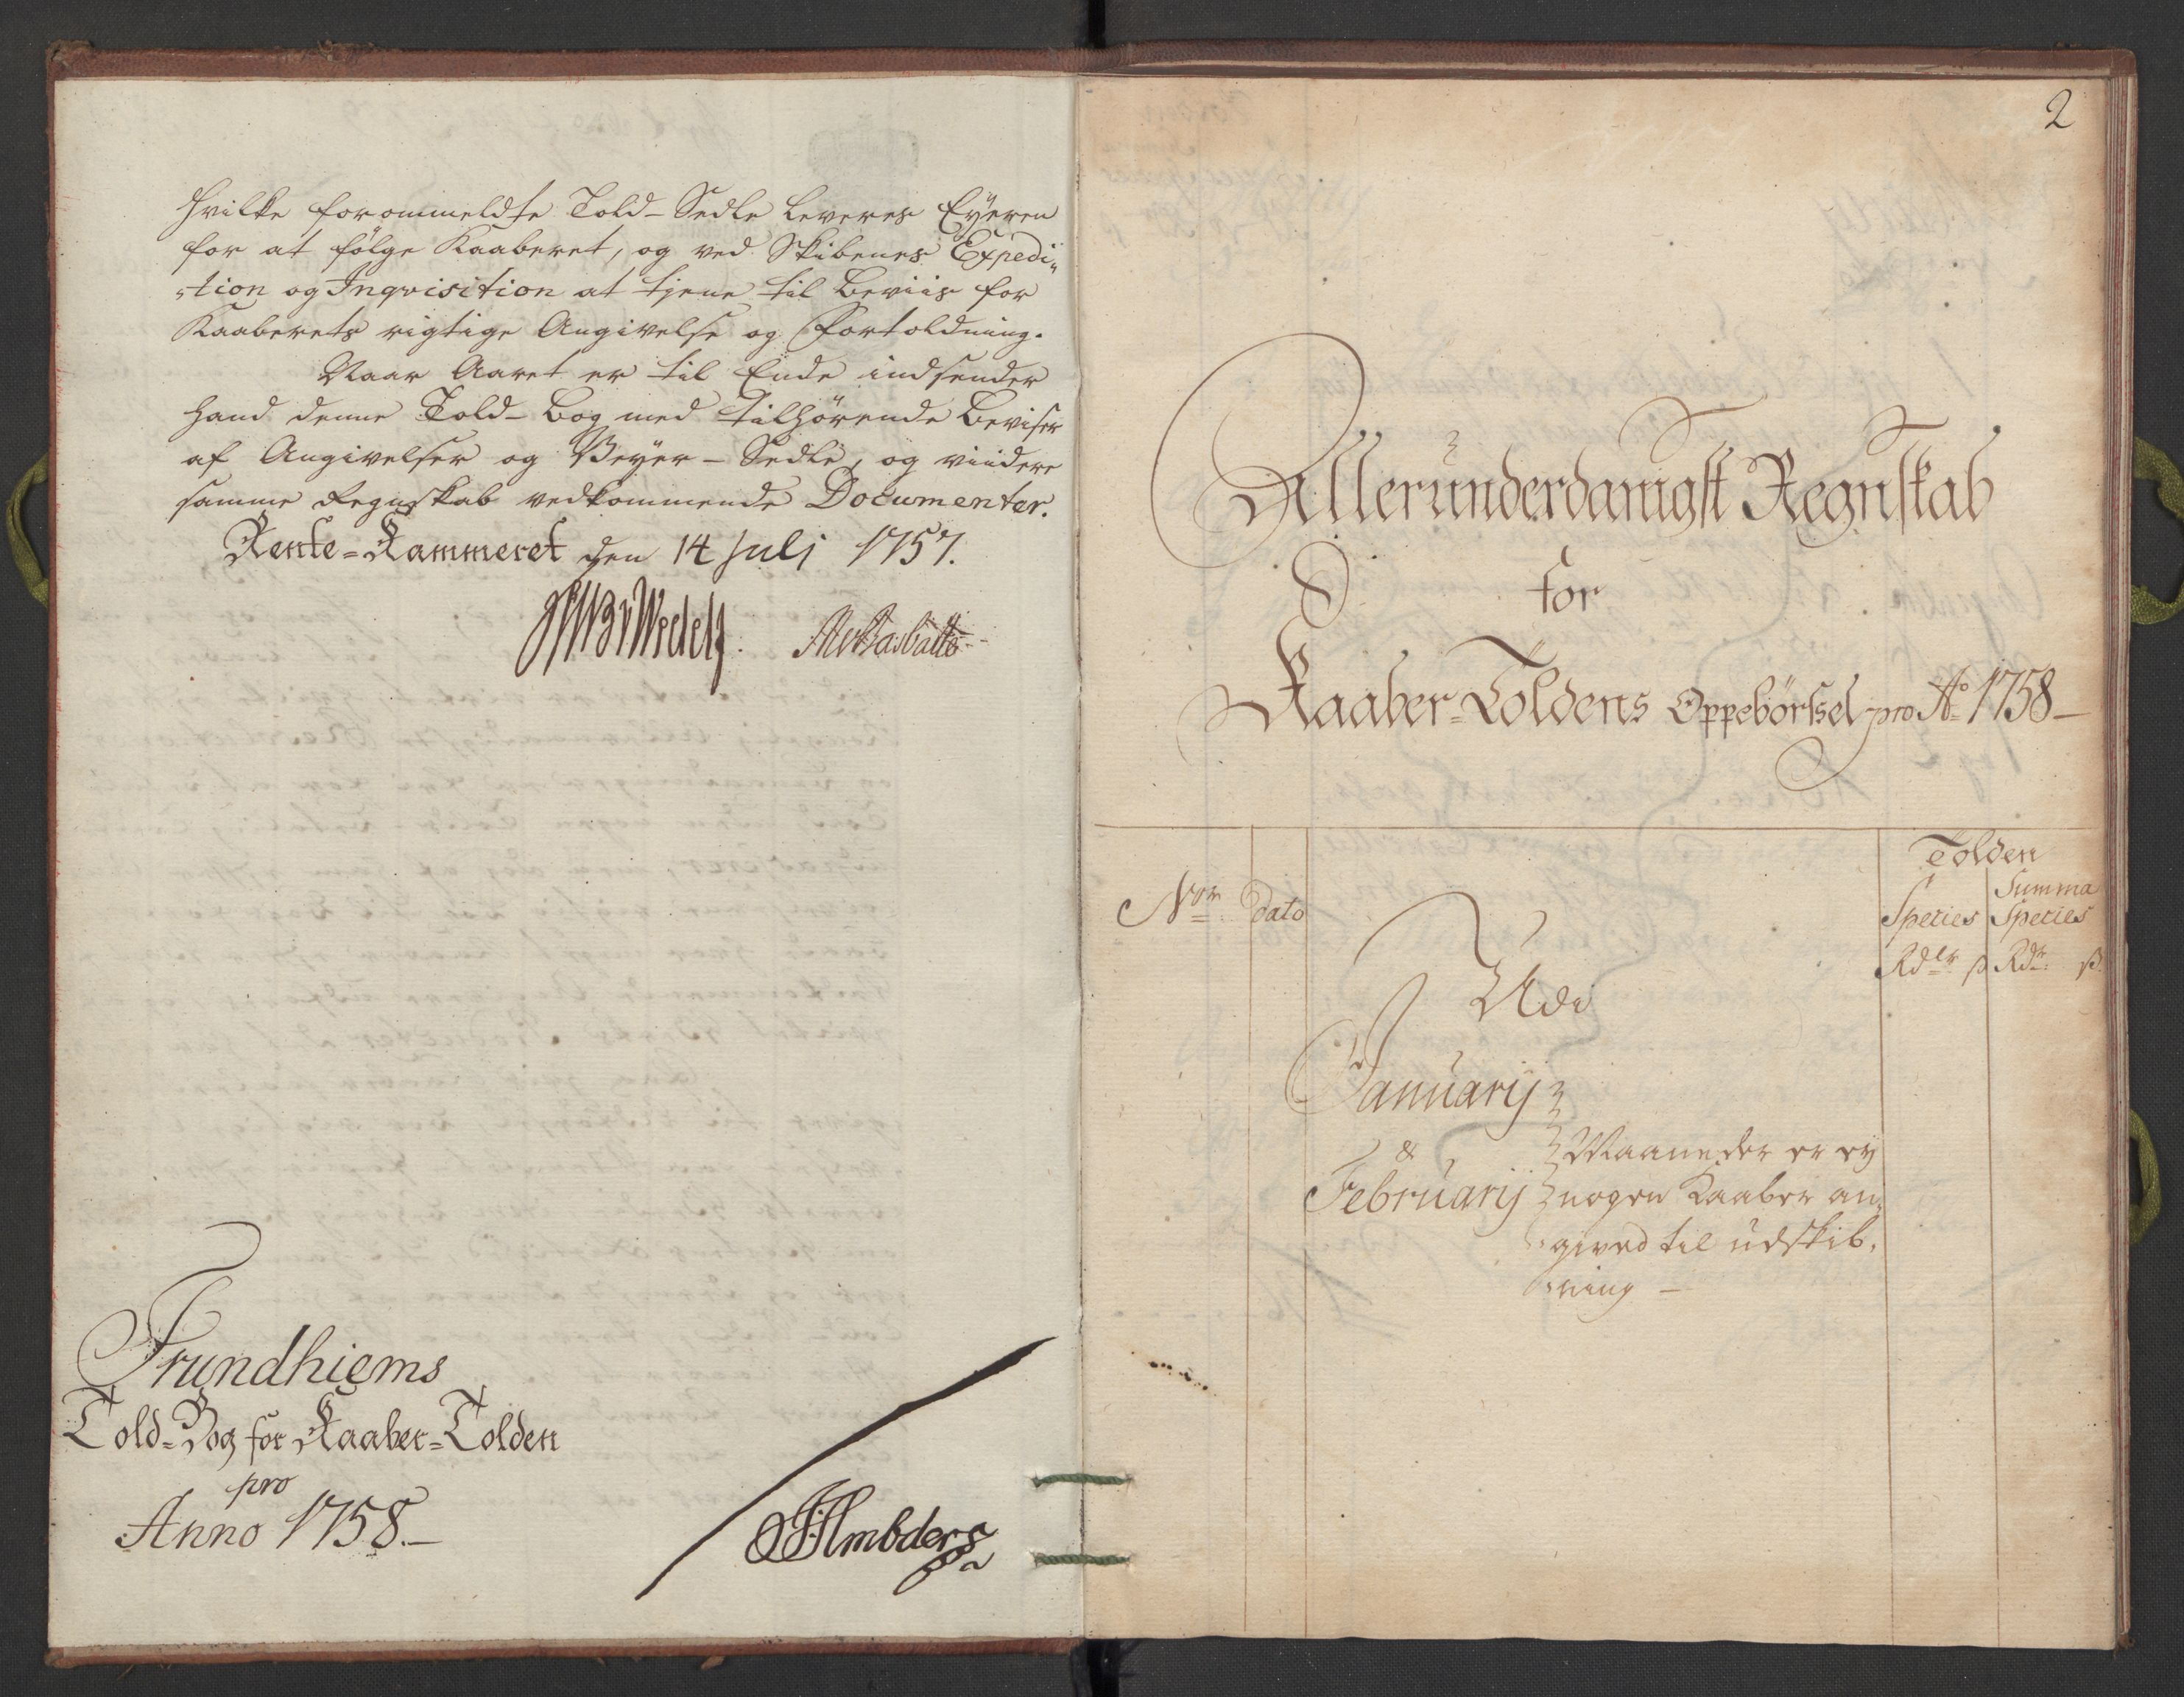 hvilke forommeldte Told-Sedle leveres Eyeren
for at følge Kaaberet, og ved Skibenes Expedi„
„tion og Inqvisition at tjene til Beviis for
Kaaberets rigtige Angivelse og Fortoldning.
Naar Aaret er til Ende indsender
hand denne Told-Bog med tilhørende Beviser
af Angivelser og Veyer-Sedle, og viidere
samme Regnskab vedkommende Documenter.
Rente=Kammeret den 14 Juli 1757.
Trundhiems
Told=Bog for Kaaber=Tolden
pro
Anno 1758.-
2
Allerunderdanigst Regnskab
for
Kaaber=Toldens Oppebørsel pro Ao 1758-
Tolden
Summa
Nor Dato Speties Speties
Rdlr ß Rdr: ß
Udi
Januarij
& Maaneder er ey
Februarij nogen Kaaber an„
gived til udskib„
„ning -